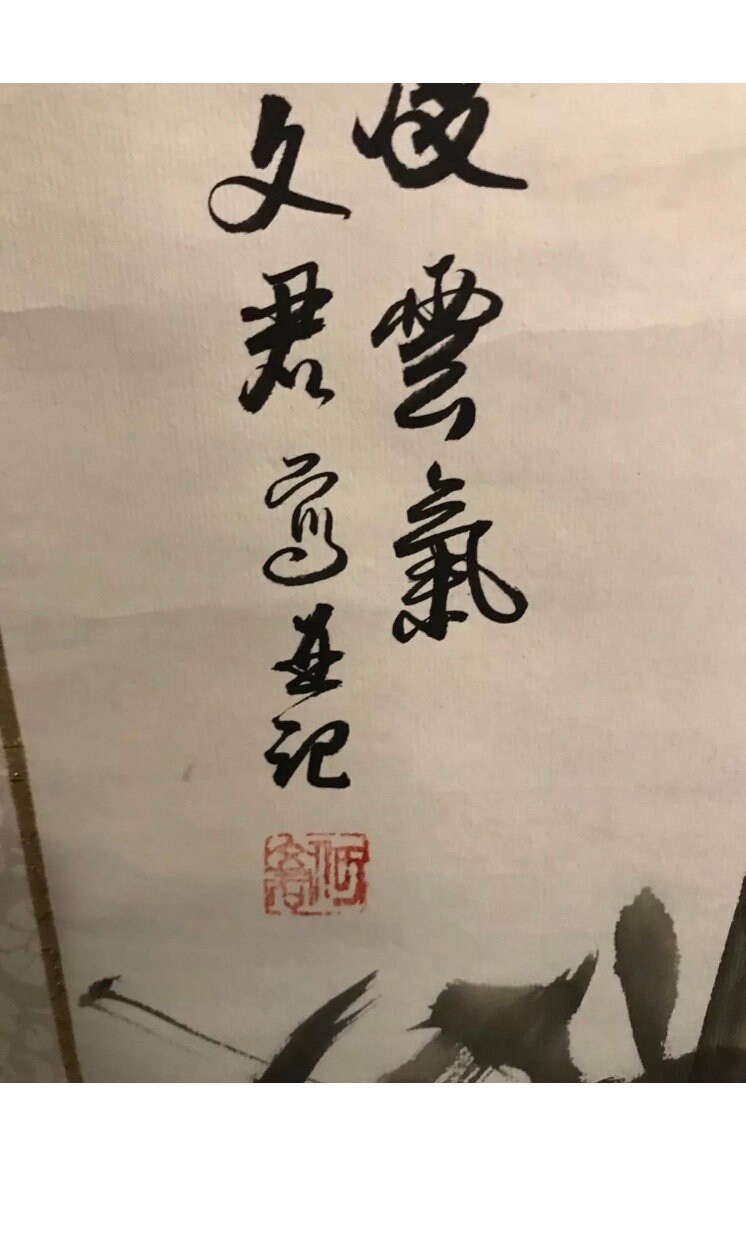 雲氣
文君寫並記